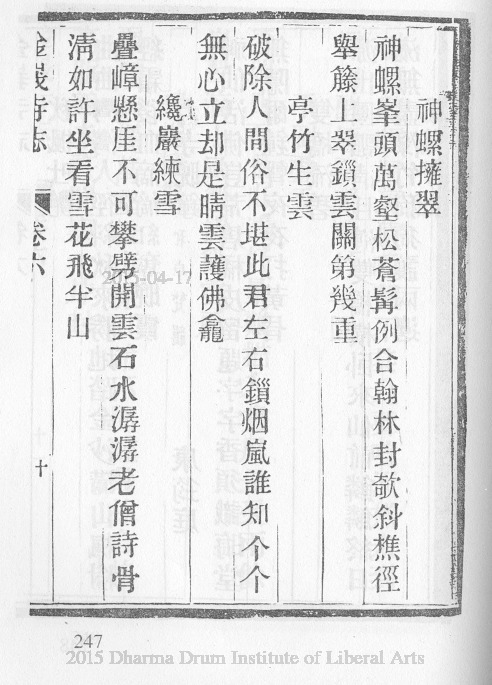 神螺擁翠
神螺峯頭萬壑松蒼髯例合翰林封欹斜樵徑
舉籐上翠鎖雲關第幾重
亭竹生雲
破除人間俗不堪此君左右鎖烟嵐誰知个个
無心立却是晴雲護佛龕
纔巖練雪
疊嶂懸崖不可攀劈開雲石水潺潺老僧詩骨
淸如許坐看雪花飛半山
金峩寺志 卷六 十
2015-04-17
247
2015 Dharma Drum Institute of Liberal Arts